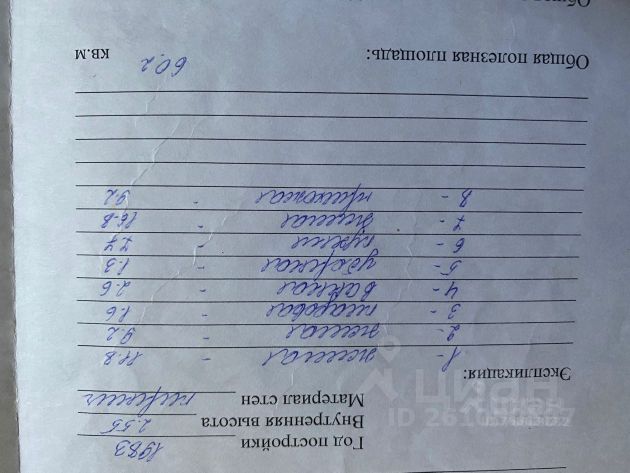 Год постройки 1983
Внутренняя высота 2.55
Материал стен кирпич
Экспликация:
1- жилая - 11.8
2- жилая - 9.2
3- кладовая - 1.6
4- ванная - 2.6
5- уборная - 1.3
6- кухня - 7.7
7- жилая - 16.8
8- прихожая - 9.2
Общая полезная площадь: 60.2 кв.м
циан
ID